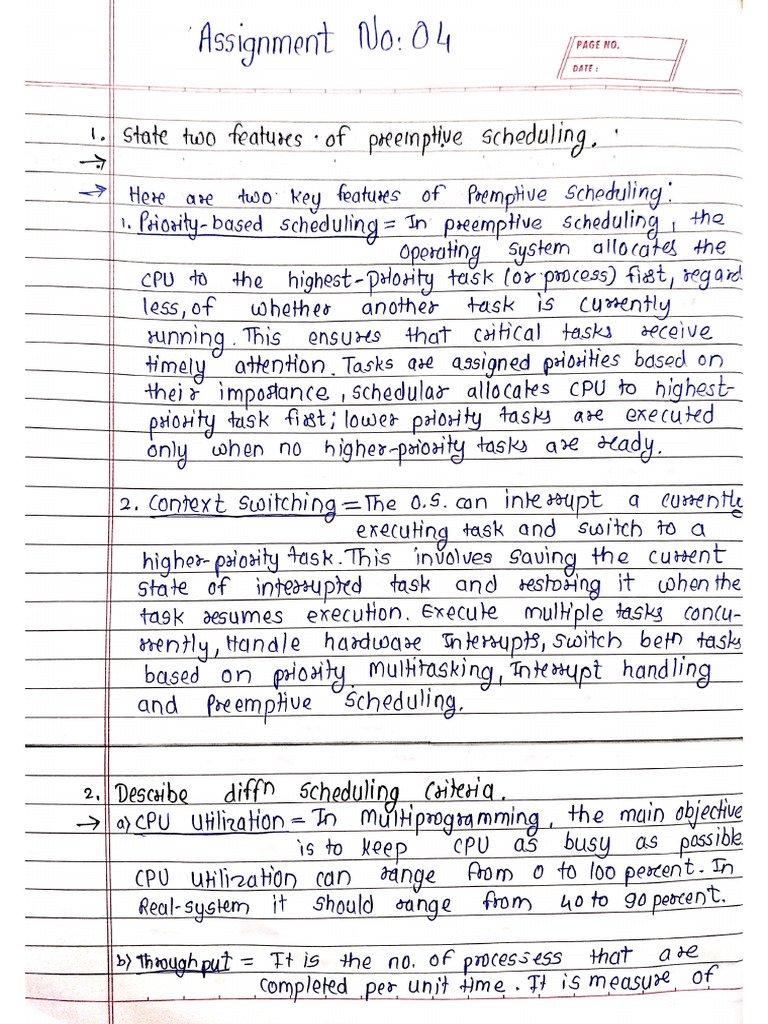 Assignment No: 04
PAGE NO.
DATE :
1. State two features of preemptive scheduling.
→
→ Here are two key features of Premptive Scheduling:
1. Priority-based scheduling = In preemptive scheduling, the
operating system allocates the
CPU to the highest-priority task (or process) first, regard
less, of whether another task is currently
running. This ensures that critical tasks receive
timely attention. Tasks are assigned priorities based on
their importance, schedular allocates CPU to highest-
priority task first; lower priority tasks are executed
only when no higher-priority tasks are ready.
2. Context Switching = The O.S. can interrupt a currently
executing task and switch to a
higher-priority task. This involves saving the current
state of interrupted task and restoring it when the
task resumes execution. Execute multiple tasks concu-
rrently, Handle hardware Interrupts, Switch betn tasks
based on priority. Multitasking, Interrupt handling
and Preemptive Scheduling.
2. Describe diffn scheduling Criteria.
→ a) CPU Utilization = In Multiprogramming, the main objective
is to keep CPU as busy as possible
CPU utilization can range from 0 to 100 percent. In
Real-system it should range from 40 to 90 percent.
b) Throughput = It is the no. of processess that are
completed per unit time. It is measure of